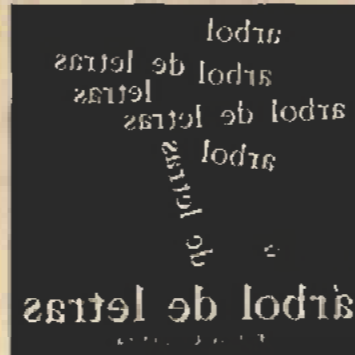 arbol
arbol de letras
letras
arbol de letras
arbol
de letras
árbol de letras